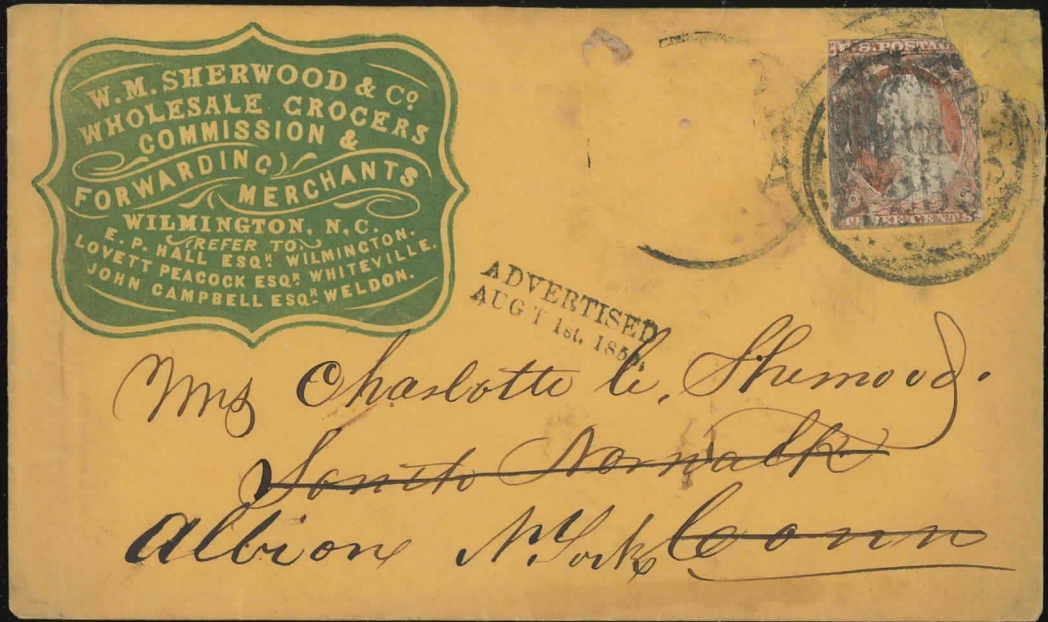 W. M. SHERWOOD & Cº
WHOLESALE GROCERS
COMMISSION &
FORWARDING
MERCHANTS
WILMINGTON, N, C.
REFER TO
E. P. HALL ESQᴿ WILMINGTON.
LOVETT PEACOCK ESQᴿ WHITEVILLE.
JOHN CAMPBELL ESQᴿ WELDON.
U.S. POSTAG
THREE CENTS
ADVERTISED
AUGT 1st. 185
Mrs Charlotte C. Sherwood.
South Norwalk
Albion N. York Conn